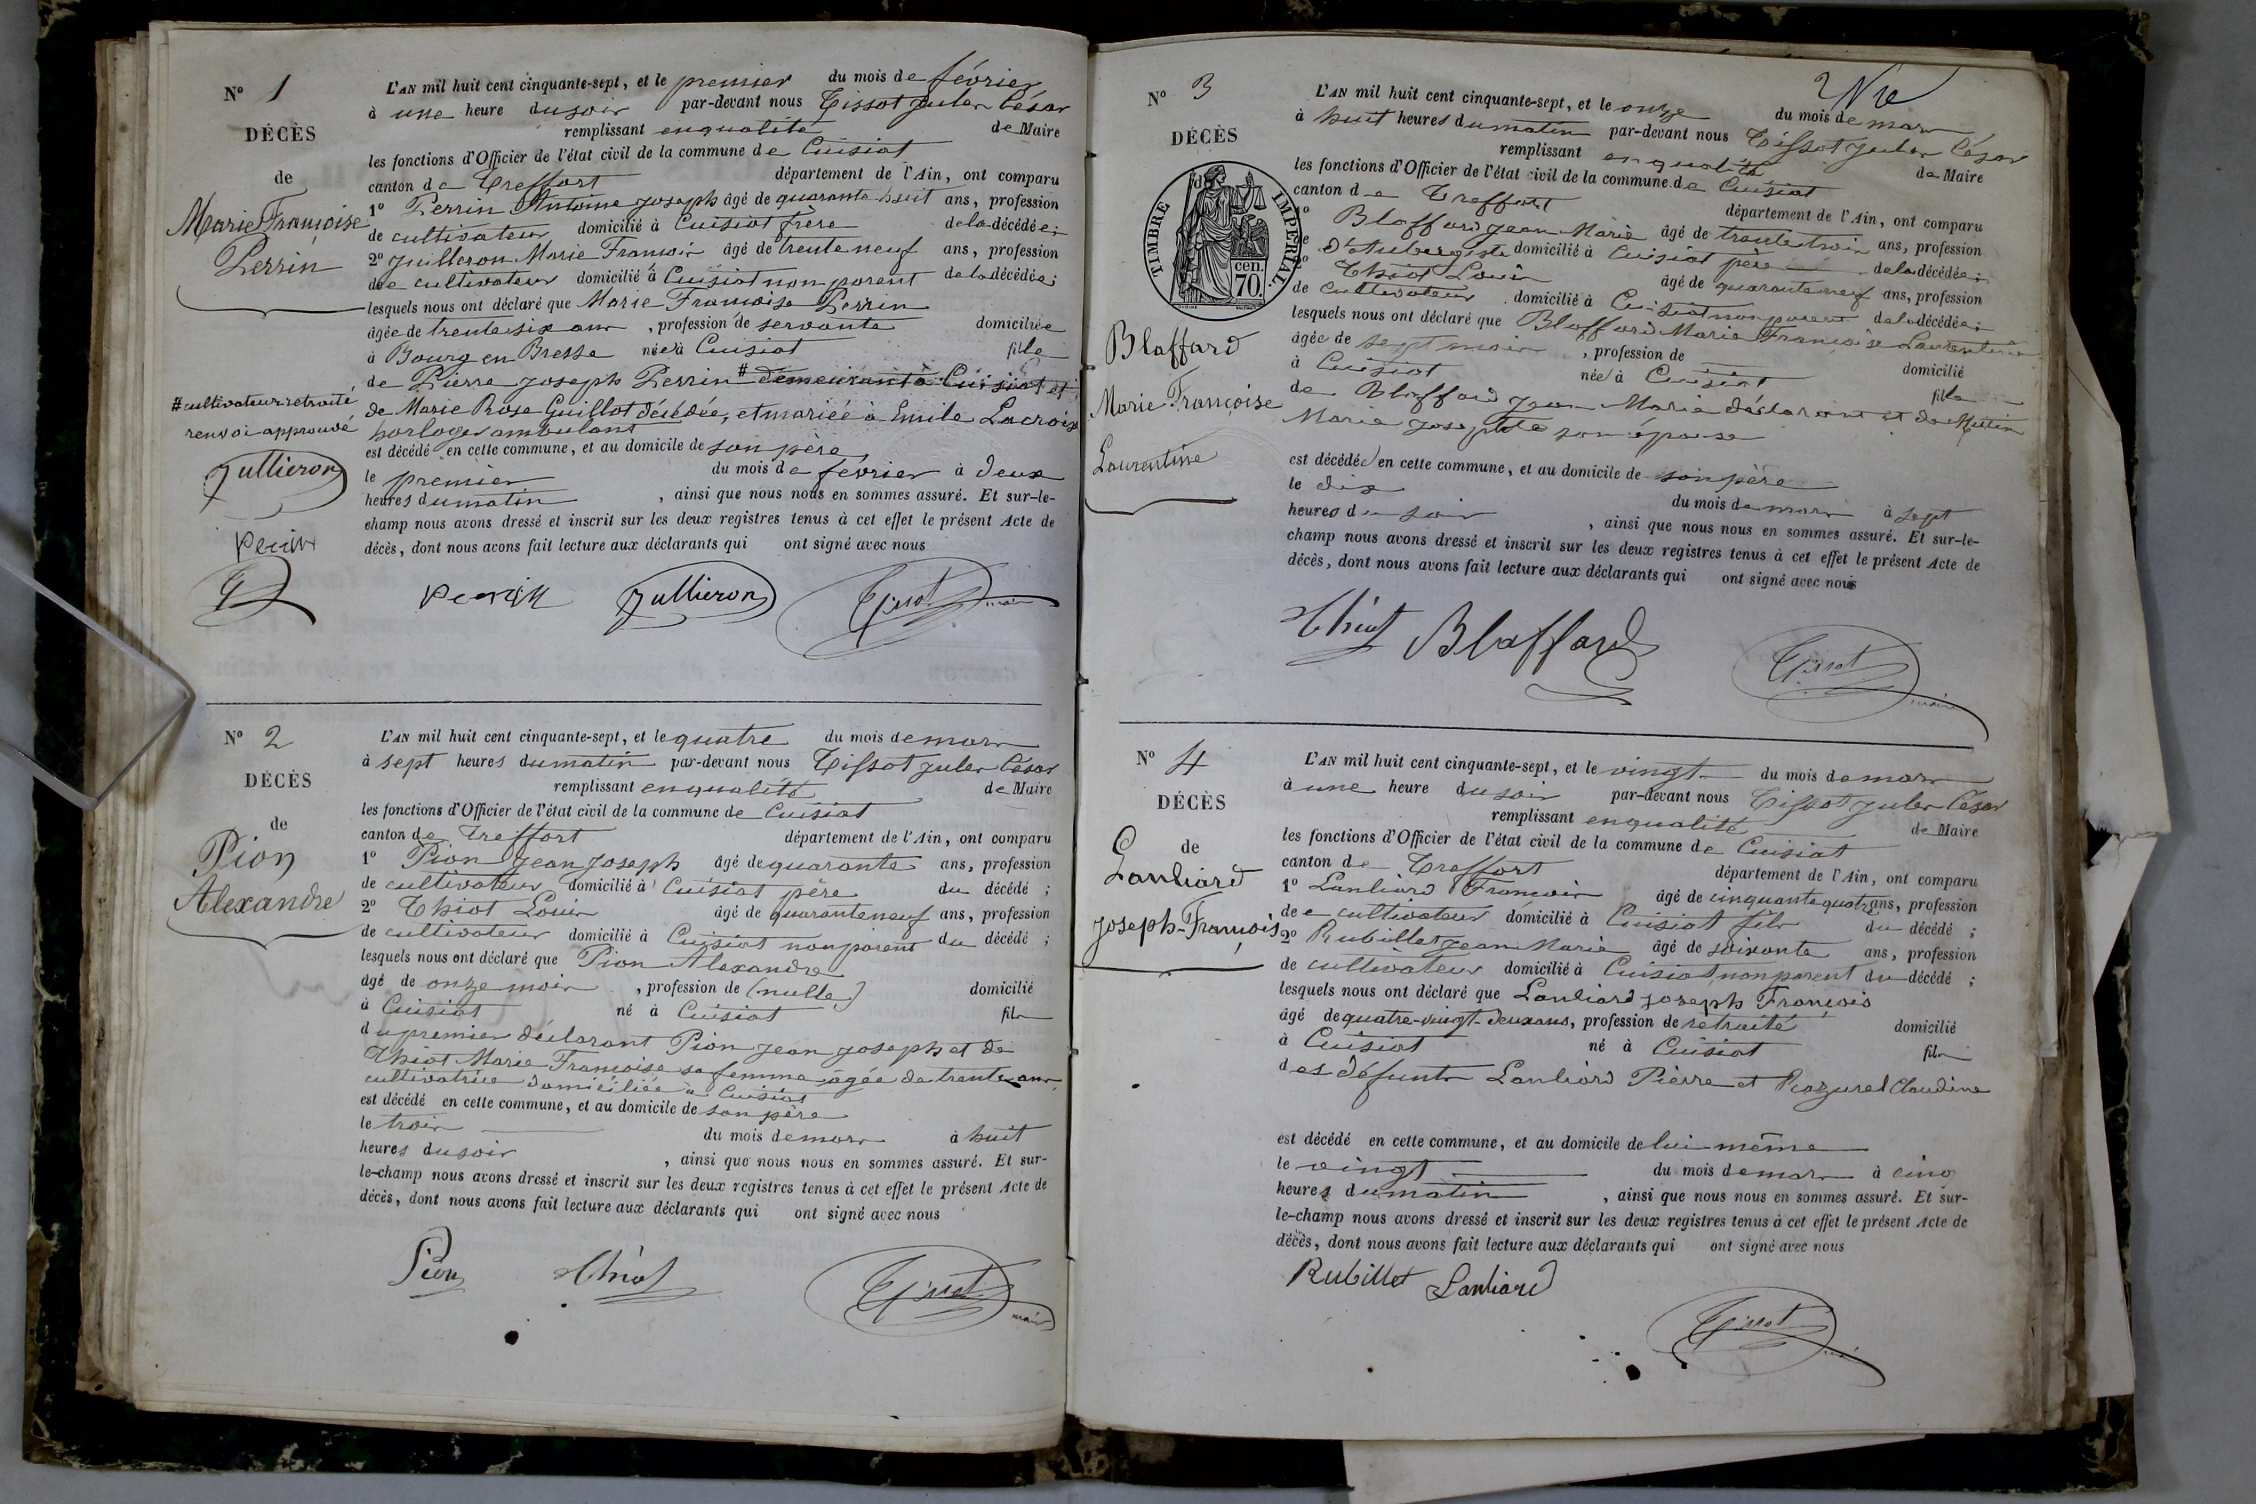 N° 1
DÉCÈS
de
Marie Françoise
Perrin
# cultivateur retraité
renvoi approuvé
Jullieron
Perrin
L'AN mil huit cent cinquante-sept, et le premier du mois de février
à une heure du soir par-devant nous Tissot Jules César
remplissant en qualité de Maire
les fonctions d'Officier de l'état civil de la commune de Cuisiat
canton de Treffort département de l'Ain, ont comparu
1° Perrin Antoine Joseph âgé de quarante huit ans, profession
de cultivateur domicilié à Cuisiat frère de la décédée;
2° Juilleron Marie François âgé de trente neuf ans, profession
de cultivateur domicilié à Cuisiat non parent de la décédée;
lesquels nous ont déclaré que Marie Françoise Perrin
âgée de trente six ans, profession de servante domiciliée
à Bourg en Bresse née à Cuisiat fille
de Pierre Joseph Perrin # demeurant à Cuisiat et
de Marie Rose Guillot décédée, et mariée à Emile Lacroix
horloger ambulant
est décédé en cette commune, et au domicile de son père
le premier du mois de février à deux
heures du matin, ainsi que nous nous en sommes assuré. Et sur-le-
champ nous avons dressé et inscrit sur les deux registres tenus à cet effet le présent Acte de
décès, dont nous avons fait lecture aux déclarants qui ont signé avec nous
Perrin Jullieron Tissot maire
N° 2
DÉCÈS
de
Pion
Alexandre
L'AN mil huit cent cinquante-sept, et le quatre du mois de mars
à sept heures du matin par-devant nous Tissot Jules César
remplissant en qualité de Maire
les fonctions d'Officier de l'état civil de la commune de Cuisiat
canton de Treffort département de l'Ain, ont comparu
1° Pion Jean Joseph âgé de quarante ans, profession
de cultivateur domicilié à Cuisiat père du décédé;
2° Thiot Louis âgé de quarante neuf ans, profession
de cultivateur domicilié à Cuisiat non parent du décédé;
lesquels nous ont déclaré que Pion Alexandre
âgé de onze mois, profession de (nulle) domicilié
à Cuisiat né à Cuisiat fils
du premier déclarant Pion Jean Joseph et de
Thiot Marie Françoise sa femme âgée de trente ans
cultivatrice domiciliée à Cuisiat
est décédé en cette commune, et au domicile de son père
le trois du mois de mars à huit
heures du soir, ainsi que nous nous en sommes assuré. Et sur-
le-champ nous avons dressé et inscrit sur les deux registres tenus à cet effet le présent Acte de
décès, dont nous avons fait lecture aux déclarants qui ont signé avec nous
Pion Thiot Tissot maire
N° 3
DÉCÈS
TIMBRE IMPÉRIAL
70 cen.
Blaffard
Marie Françoise
Laurentine
L'AN mil huit cent cinquante-sept, et le onze du mois de mars
à huit heures du matin par-devant nous Tissot Jules César
remplissant en qualité de Maire
les fonctions d'Officier de l'état civil de la commune de Cuisiat
canton de Treffort département de l'Ain, ont comparu
Blaffard Jean Marie âgé de trente trois ans, profession
d'Aubergiste domicilié à Cuisiat père de la décédée;
Thiot Louis âgé de quarante neuf ans, profession
de cultivateur domicilié à Cuisiat non parent de la décédée;
lesquels nous ont déclaré que Blaffard Marie Françoise Laurentine
âgée de sept mois, profession de domicilié
à Cuisiat née à Cuisiat fille
de Blaffard Jean Marie déclarant et de
Marie Josephte son épouse
est décédée en cette commune, et au domicile de son père
le dix du mois de mars à sept
heures du soir, ainsi que nous nous en sommes assuré. Et sur-le-
champ nous avons dressé et inscrit sur les deux registres tenus à cet effet le présent Acte de
décès, dont nous avons fait lecture aux déclarants qui ont signé avec nous
Thiot Blaffard Tissot maire
N° 4
DÉCÈS
de
Lanliard
Joseph-François
L'AN mil huit cent cinquante-sept, et le vingt du mois de mars
à une heure du soir par-devant nous Tissot Jules César
remplissant en qualité de Maire
les fonctions d'Officier de l'état civil de la commune de Cuisiat
canton de Treffort département de l'Ain, ont comparu
1° Lanliard François âgé de cinquante quatre ans, profession
de cultivateur domicilié à Cuisiat fils du décédé;
2° Rubillet Jean Marie âgé de soixante ans, profession
de cultivateur domicilié à Cuisiat non parent du décédé;
lesquels nous ont déclaré que Lanliard Joseph François
âgé de quatre-vingt-deux ans, profession de retraité domicilié
à Cuisiat né à Cuisiat fils
des défunts Lanliard Pierre et Claudine
est décédé en cette commune, et au domicile de lui même
le vingt du mois de mars à cinq
heures du matin, ainsi que nous nous en sommes assuré. Et sur-
le-champ nous avons dressé et inscrit sur les deux registres tenus à cet effet le présent Acte de
décès, dont nous avons fait lecture aux déclarants qui ont signé avec nous
Rubillet Lanliard
Tissot